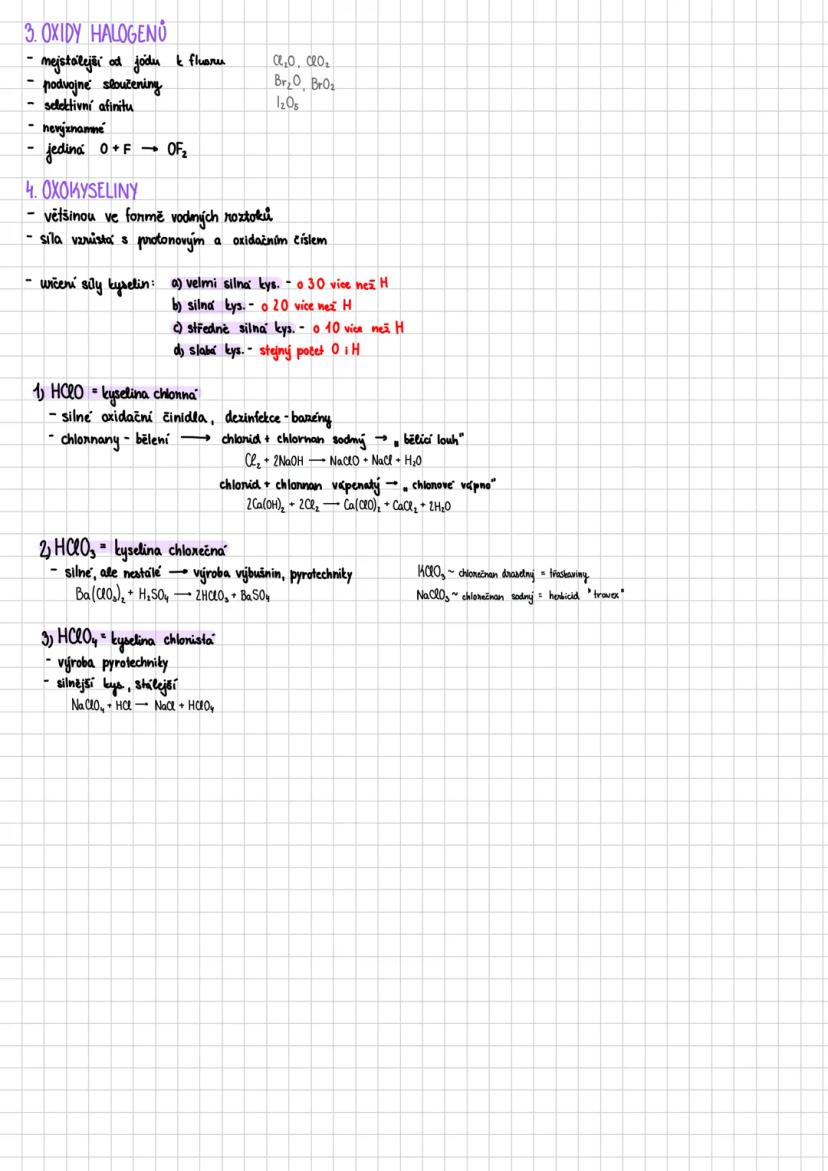 3. OXIDY HALOGENŮ
- nejstálejší od jódu k fluoru
Cl₂O, ClO₂
- podvojné sloučeniny
Br₂O, BrO₂
- selektivní afinitu
I₂O₅
- nevýznamné
- jediná O + F → OF₂
4. OXOKYSELINY
- většinou ve formě vodných roztoků
- síla vzrůstá s protonovým a oxidačním číslem
- určení síly kyselin: a) velmi silná kys. - o 3O více než H
b) silná kys. - o 2O více než H
c) středně silná kys. - o 1O více než H
d) slabá kys. - stejný počet O i H
1) HClO = kyselina chlorná
- silné oxidační činidla, dezinfekce - bazény
- chlornany - bělení → chlorid + chlornan sodný → „bělící louh"
Cl₂ + 2NaOH → NaClO + NaCl + H₂O
chlorid + chlornan vápenatý → „chlorové vápno"
2Ca(OH)₂ + 2Cl₂ → Ca(ClO)₂ + CaCl₂ + 2H₂O
2) HClO₃ = kyselina chlorečná
- silné, ale nestálé → výroba výbušnin, pyrotechniky
KClO₃ ~ chlorečnan draselný = třaskaviny
Ba(ClO₃)₂ + H₂SO₄ → 2HClO₃ + BaSO₄
NaClO₃ ~ chlorečnan sodný = herbicid "travex"
3) HClO₄ = kyselina chloristá
- výroba pyrotechniky
- silnější kys, stálejší
NaClO₄ + HCl → NaCl + HClO₄